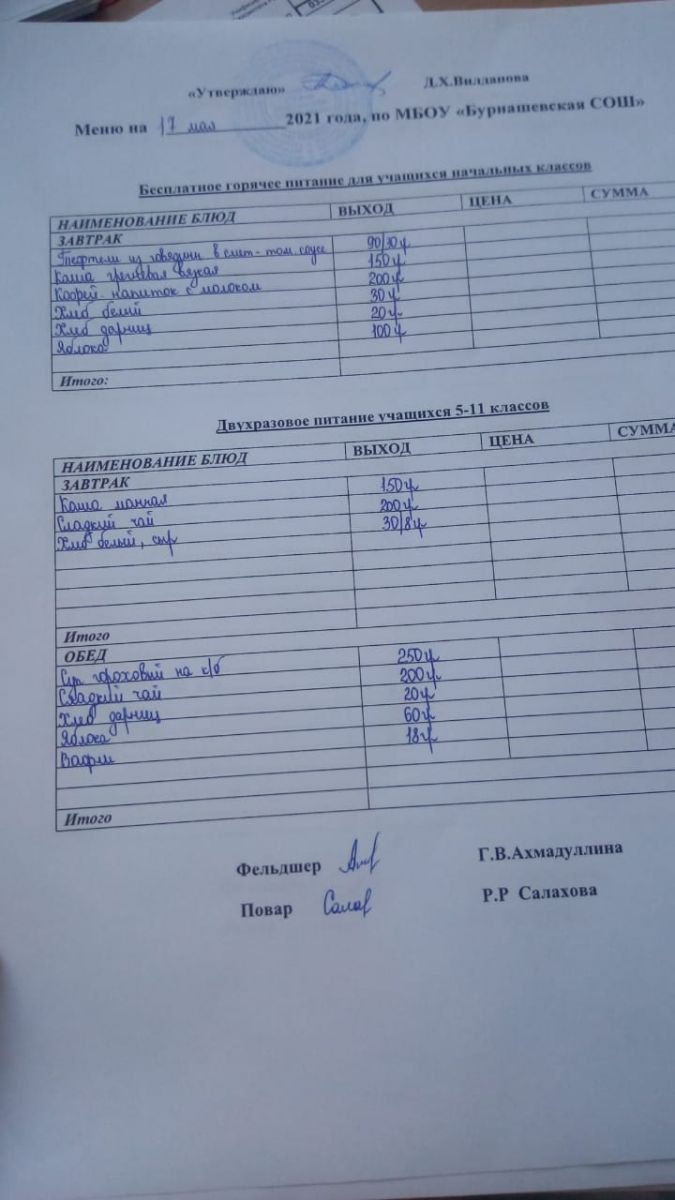 «Утверждаю» Д.Х.Вилданова
Меню на 17 мая 2021 года, по МБОУ «Бурнашевская СОШ»
Бесплатное горячее питание для учащихся начальных классов
НАИМЕНОВАНИЕ БЛЮД ВЫХОД ЦЕНА СУММА
ЗАВТРАК
Тефтели из говядины в смет-том. соусе 90/30г
Каша гречневая вязкая 150г
Кофей. напиток с молоком 200г
Хлеб белый 30г
Хлеб дарниц 20г
Яблоко 100г
Итого:
Двухразовое питание учащихся 5-11 классов
НАИМЕНОВАНИЕ БЛЮД ВЫХОД ЦЕНА СУММА
ЗАВТРАК
Каша манная 150г
Сладкий чай 200г
Хлеб белый, сыр 30/8г
Итого
ОБЕД
Суп гороховый на к/б 250г
Сладкий чай 200г
Хлеб дарниц 20г
Яблоко 60г
Вафли 18г
Итого
Фельдшер Г.В.Ахмадуллина
Повар Салах Р.Р Салахова